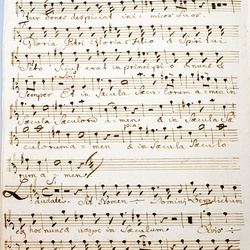 tur donec despiciat inimicos suos.
Gloria Patri Gloria Filio & Spiritui
Sicut erat in principio & nunc &
Semper Et in Sæcula Sæculorum amen in
Sæcula Sæculorum amen in Sæcula Sæ
culorum amen in Sæcula Sæculo
rum amen
Laudate Nomen Domini Benedictum
ex hoc nunc usque in Sæculum